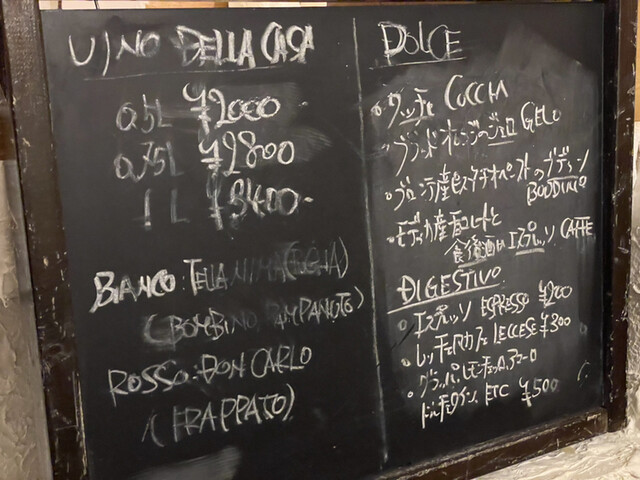 VINO DELLA CASA
0.5L ¥2000-
0.75L ¥2800
1L ¥3400-
BIANCO: TELLA NIMA
(BOMBINO, PAMPANUTO)
ROSSO: DON CARLO
(FRAPPATO)
DOLCE
クッチャ COCCIA
ブラッドオレンジのジェロ GELO
ブロンテ産ピスタチオペーストのブディーノ
BODDINO
モディカ産チョコレートと
食後酒 エスプレッソ CAFFE
DIGESTIVO
エスプレッソ ESPRESSO ¥200
レッチェ カフェ LECCESE ¥300
グラッパ、レモンチェッロ、アマーロ
ドルチェワイン, ETC ¥500